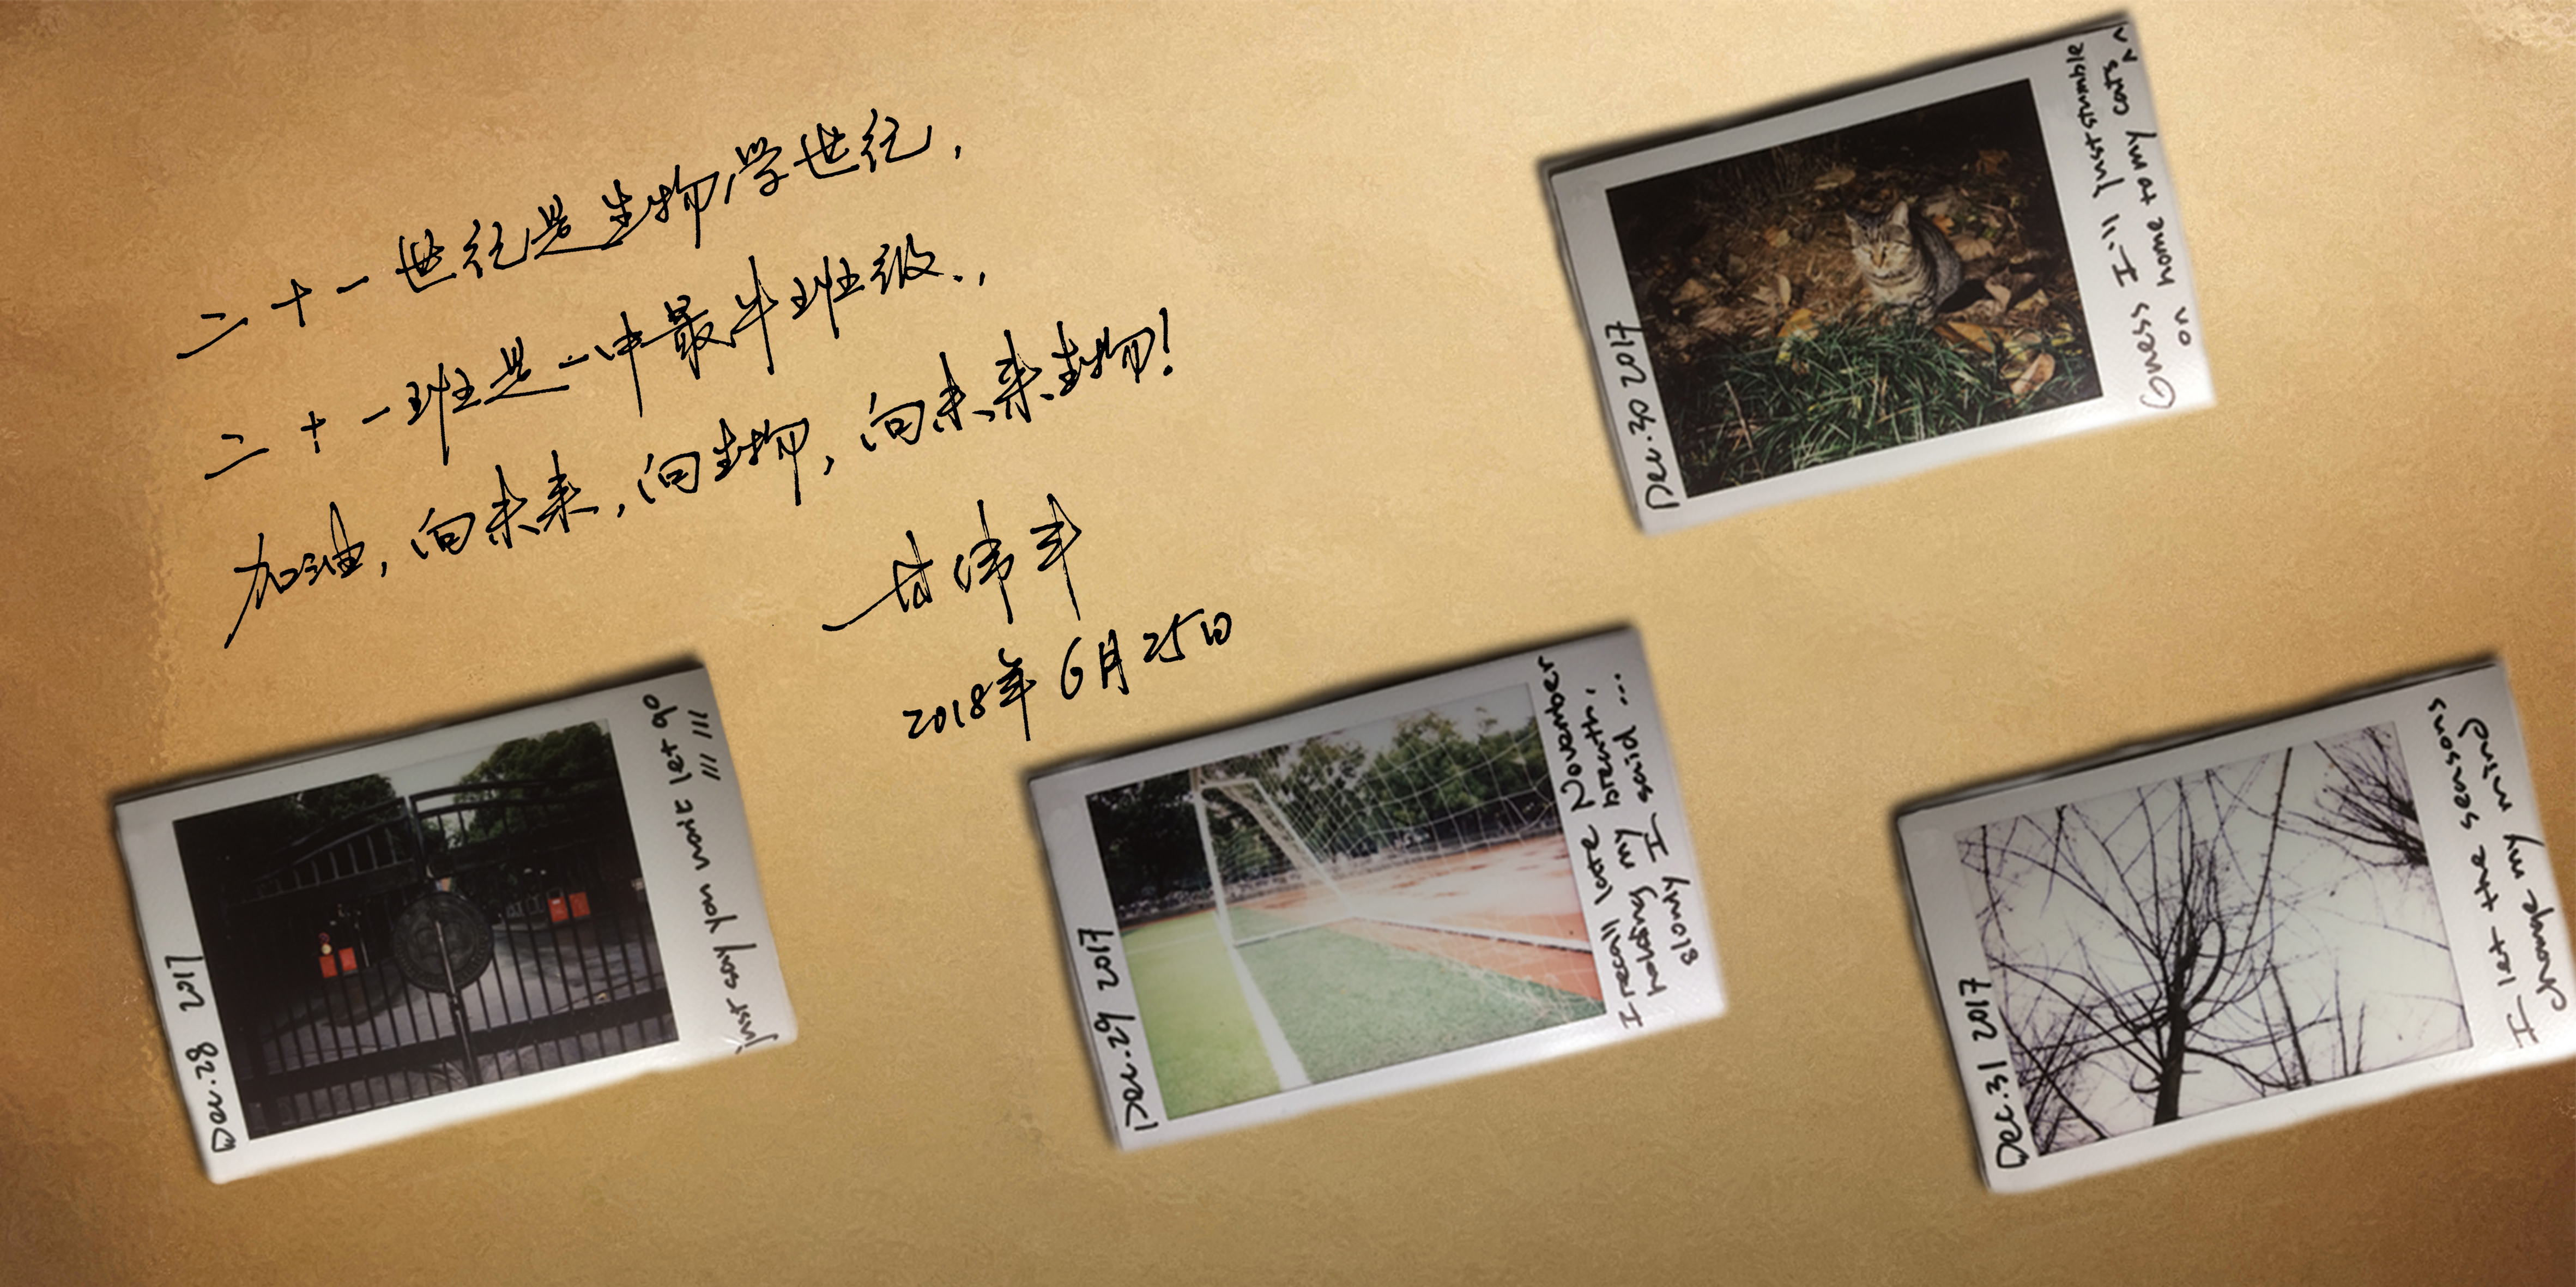 二十一世纪是生物学世纪，
二十一班是一中最牛班级.，
加油，向未来，向生物，向未来生物！
2018年6月25日
Dec.30 2017
Guess I'll just stumble
on home to my cats ^^
Dec.28 2017
just say you won't let go
/// ///
Dec.29 2017
I recall late November
holding my breath,
slowly I said ...
Dec.31 2017
I let the seasons
change my mind